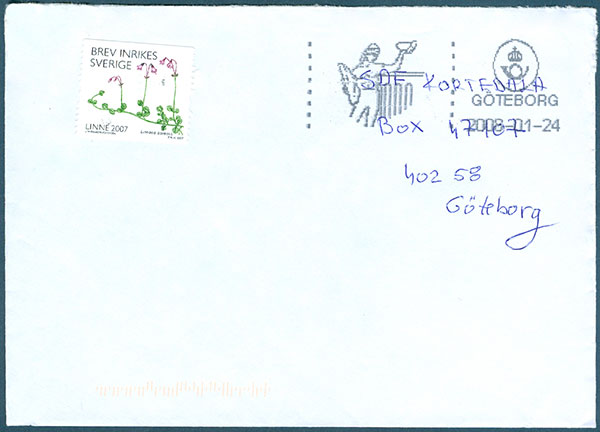 BREV INRIKES
SVERIGE
LINNÉ 2007
SDF KORTEDALA
GÖTEBORG
2008-01-24
Box 47107
402 58
Göteborg